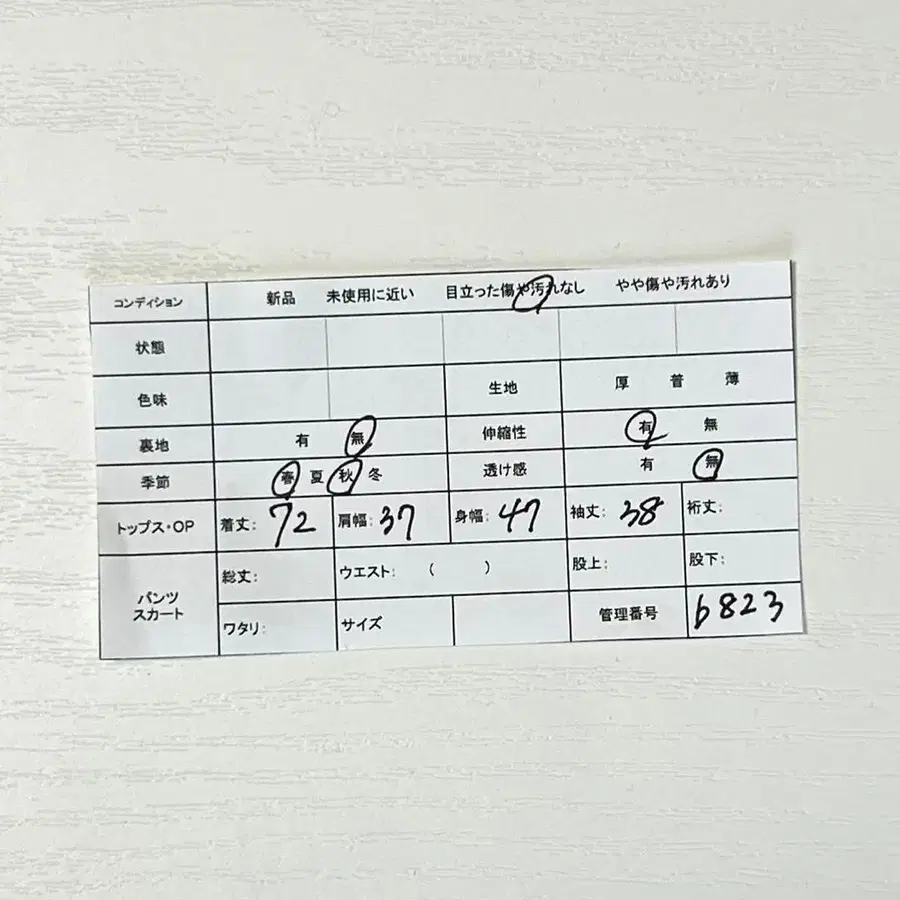 コンディション 新品 未使用に近い 目立った傷や汚れなし やや傷や汚れあり
状態
色味 生地 厚 普 薄
裏地 有 無 伸縮性 有 無
季節 春 夏 秋 冬 透け感 有 無
トップス・OP 着丈: 72 肩幅: 37 身幅: 47 袖丈: 38 裄丈:
パンツ スカート 総丈: ウエスト: ( ) 股上: 股下:
ワタリ: サイズ 管理番号 6823